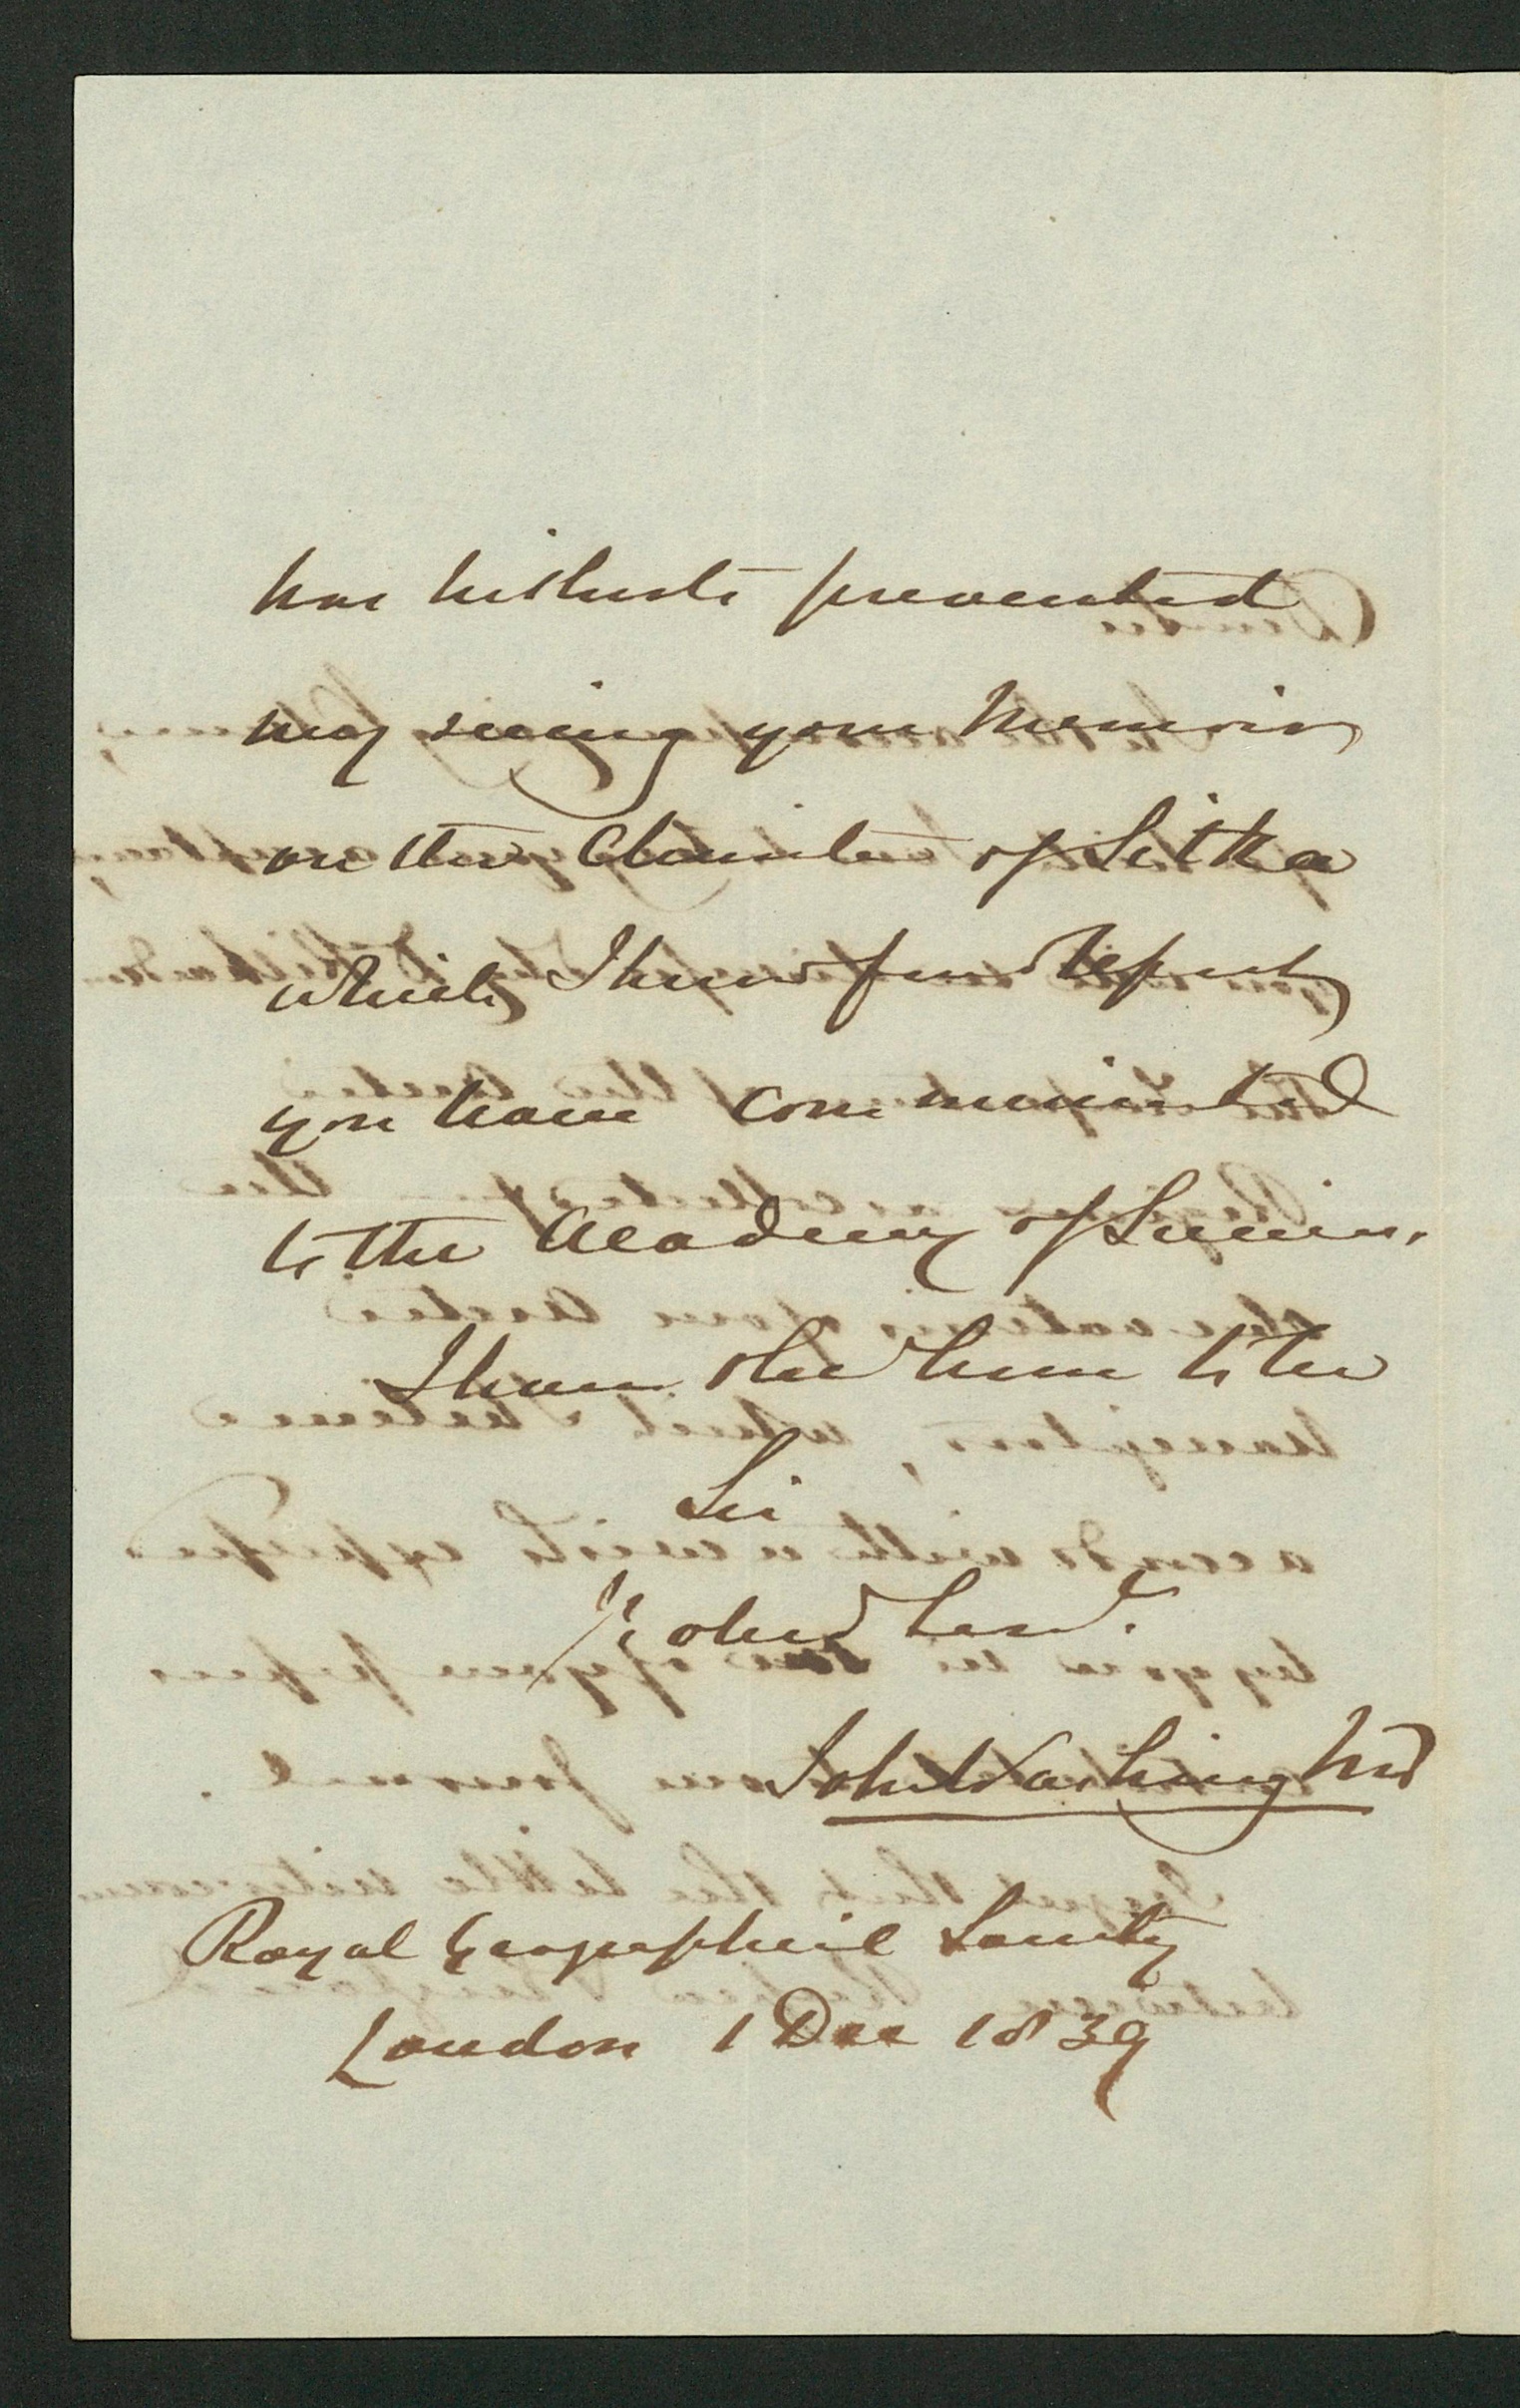 has hitherto prevented
my seeing your Memoir
on the Climate of Sitka
which I hear from Report
you have communicated
to the Academy of Sciences.
I have the honor to be
Sir
Yr obed Servt.
John Washington
Royal Geographical Society
London 1 Dec 1839